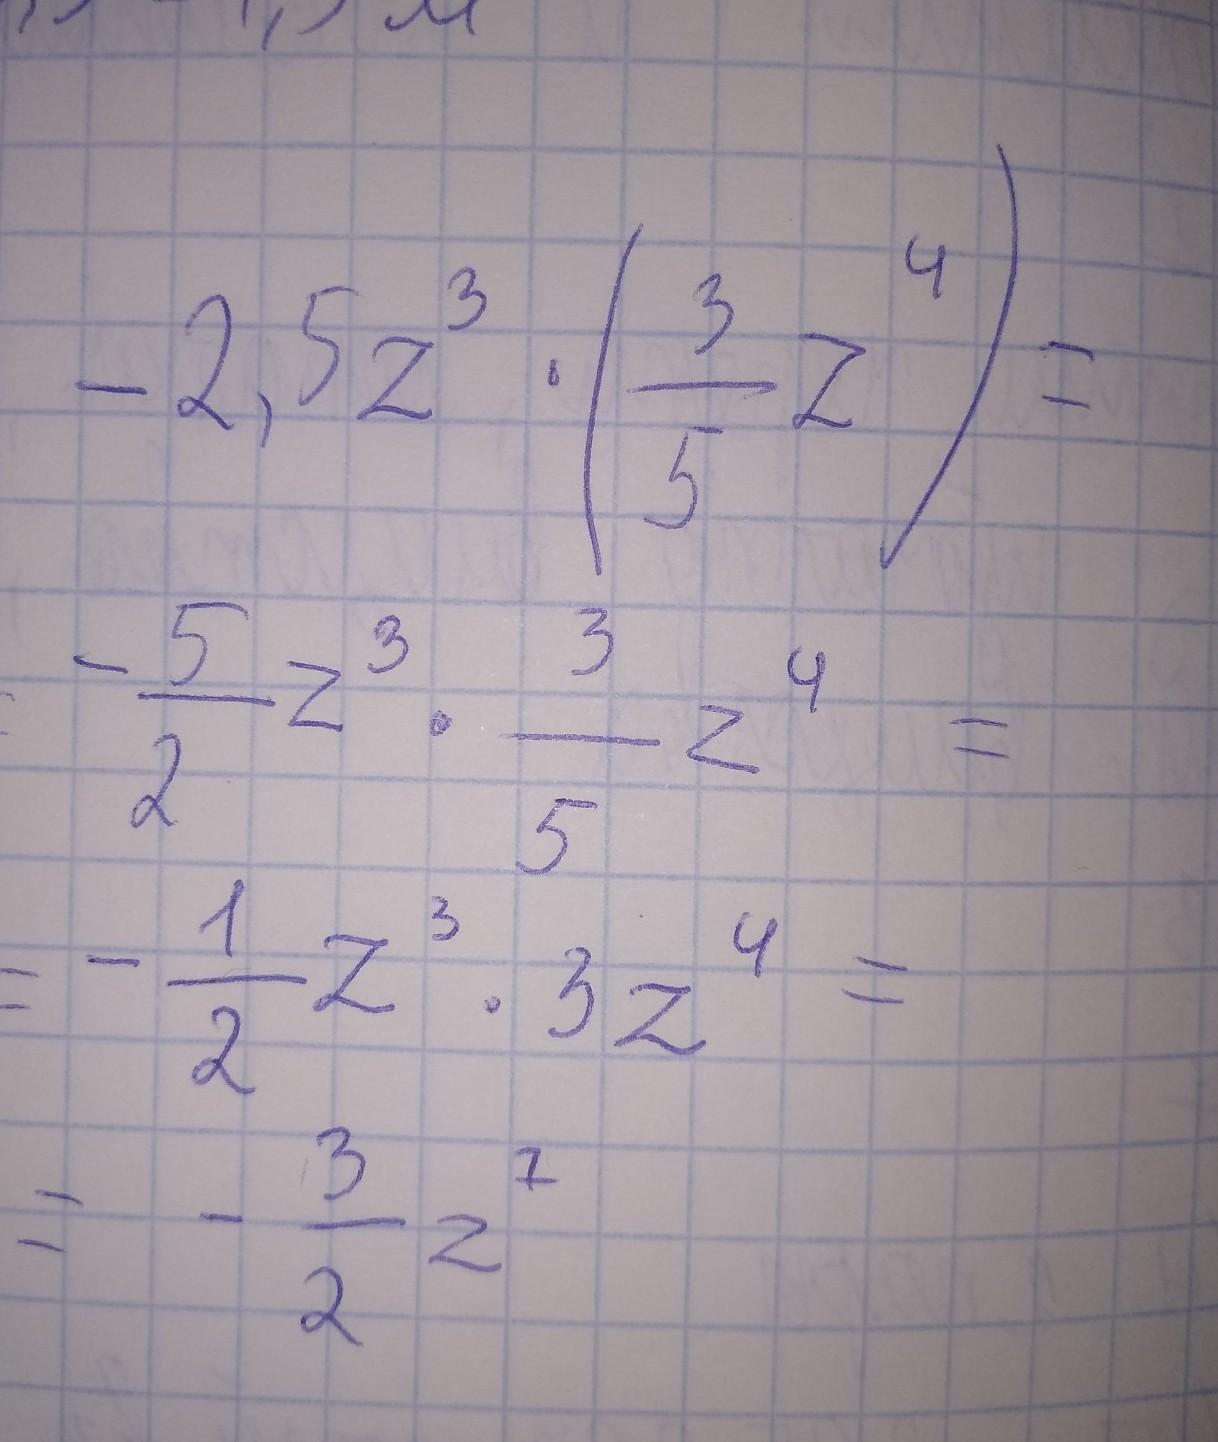 -2,5z³ · (3/5 z⁴) =
-5/2 z³ · 3/5 z⁴ =
= -1/2 z³ · 3z⁴ =
= - 3/2 z⁷